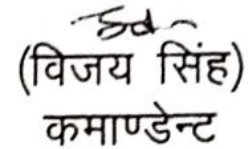 Sd-
(विजय सिंह)
कमाण्डेन्ट